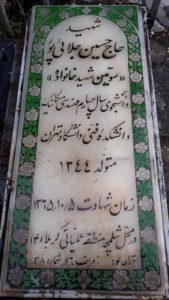 شهید
حاج حسین جلایی پو
«سومین شهید خانواده»
دانشجوی سال چهارم مهندسی مکانیک
دانشکده فنی دانشگاه تهران
متولد ۱۳۴۴
زمان شهادت ۱۳۶۵/۱۰/۵
در محل شلمچه منطقه عملیاتی کربلا ۴
قطعه ۲۴